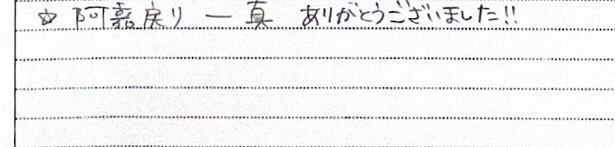 ☆阿嘉戻り 一真 ありがとうございました!!